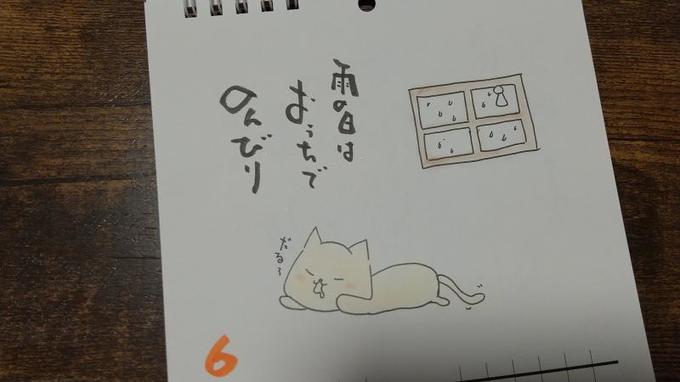 雨の日は
おうちで
のんびり
だる〜
6